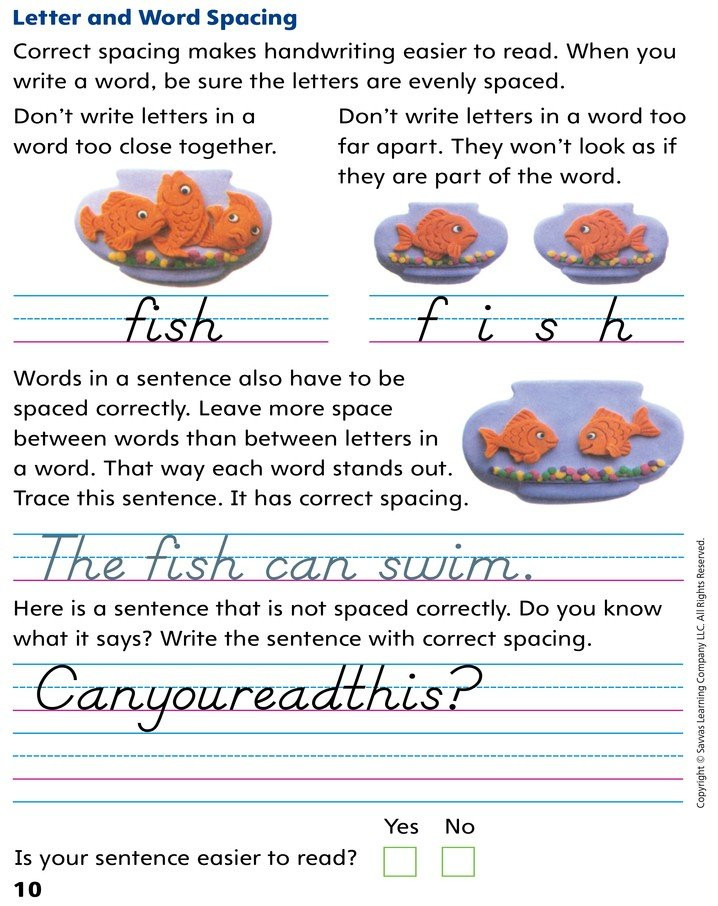 Letter and Word Spacing
Correct spacing makes handwriting easier to read. When you
write a word, be sure the letters are evenly spaced.
Don't write letters in a
word too close together.
Don't write letters in a word too
far apart. They won't look as if
they are part of the word.
fish
f i s h
Words in a sentence also have to be
spaced correctly. Leave more space
between words than between letters in
a word. That way each word stands out.
Trace this sentence. It has correct spacing.
The fish can swim.
Here is a sentence that is not spaced correctly. Do you know
what it says? Write the sentence with correct spacing.
Canyoureadthis?
Yes No
Is your sentence easier to read?
10
Copyright © Savvas Learning Company LLC. All Rights Reserved.